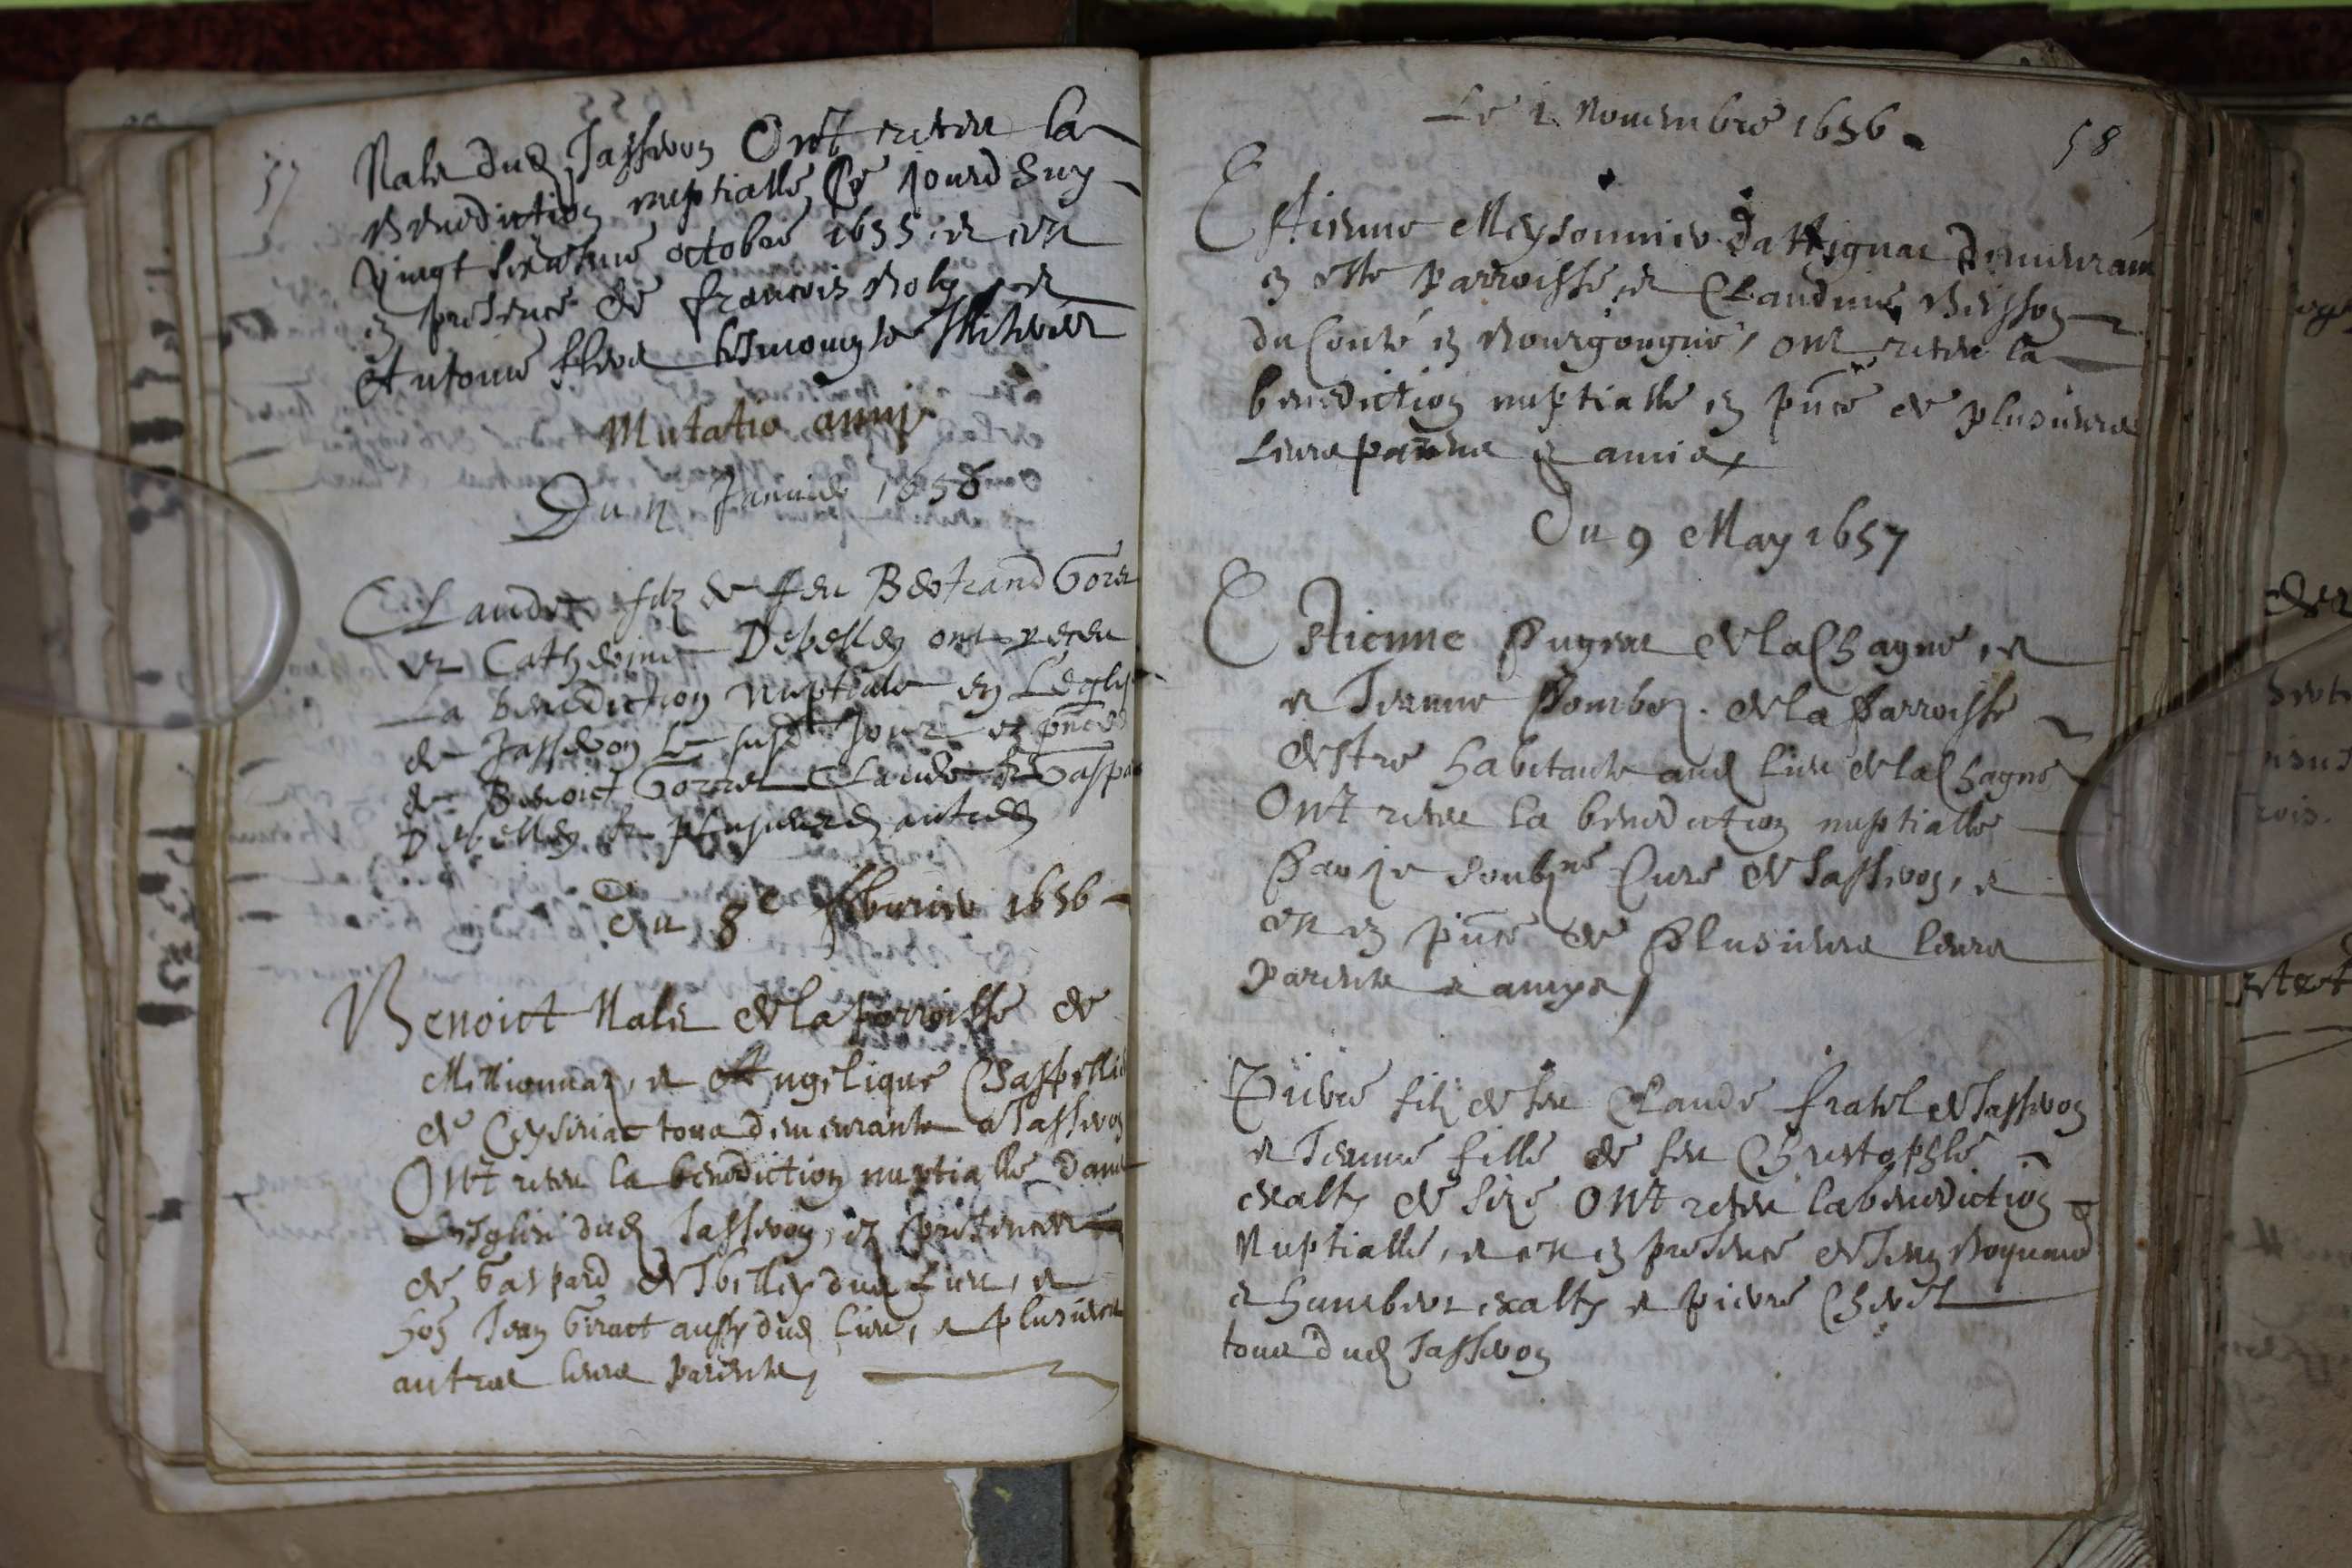 57
Nale dud Jasseron Ont receu la
Benediction nuptialle Ce jourdhuy
vingt sixiesme octobre 1655 et ce
en presence de francois Roly et
Antoine tesmoings
Mutatio anni
Du Janvier 1656
Claude filz de feu Bertrand Goret
et Catherine Debelley ont receu
La benediction Nuptiale en Leglise
de Jasseron Le susd Jour en pnce
de Benoict Gorret Claude & Gaspar
Debelley & plusieurs autres
Du 8e febvrier 1656
Benoict Nale de la parroisse de
Millionnaz, et Angelique
de Ceyseriac tous demeurants a Jasseron
Ont receu la benediction nuptialle dans
Lesglise dud Jasseron, en presence
de Gaspard Debelley dud Lieu, et
hon Jean aussy dud lieu, et plusieurs
autres leurs parents,
58
Le 2 Novembre 1656
Estienne Meysonnier Dattignat demeurant
en ceste parroisse et Claudine Buisson
du Conté en Bourgongne, ont receu la
benediction nuptialle en pnce de plusieurs
Leurs parens et amis
Du 9 May 1657
Estienne de la Chagne, et
et Jeanne de la Parroisse
destre habitants aud lieu de la Chagne
Ont receu la benediction nuptialle
Par je soubzne Curé de Jasseron, et
ce en pnce de Plusieurs leurs
parents et amys,
Pierre filz de feu Claude fratel de Jasseron
et Jeanne fille de feu Christophle
exalty de Size Ont receu la benediction
Nuptialle, et ce en presence de Jean
et Humbert exalty et pierre
tous dud Jasseron